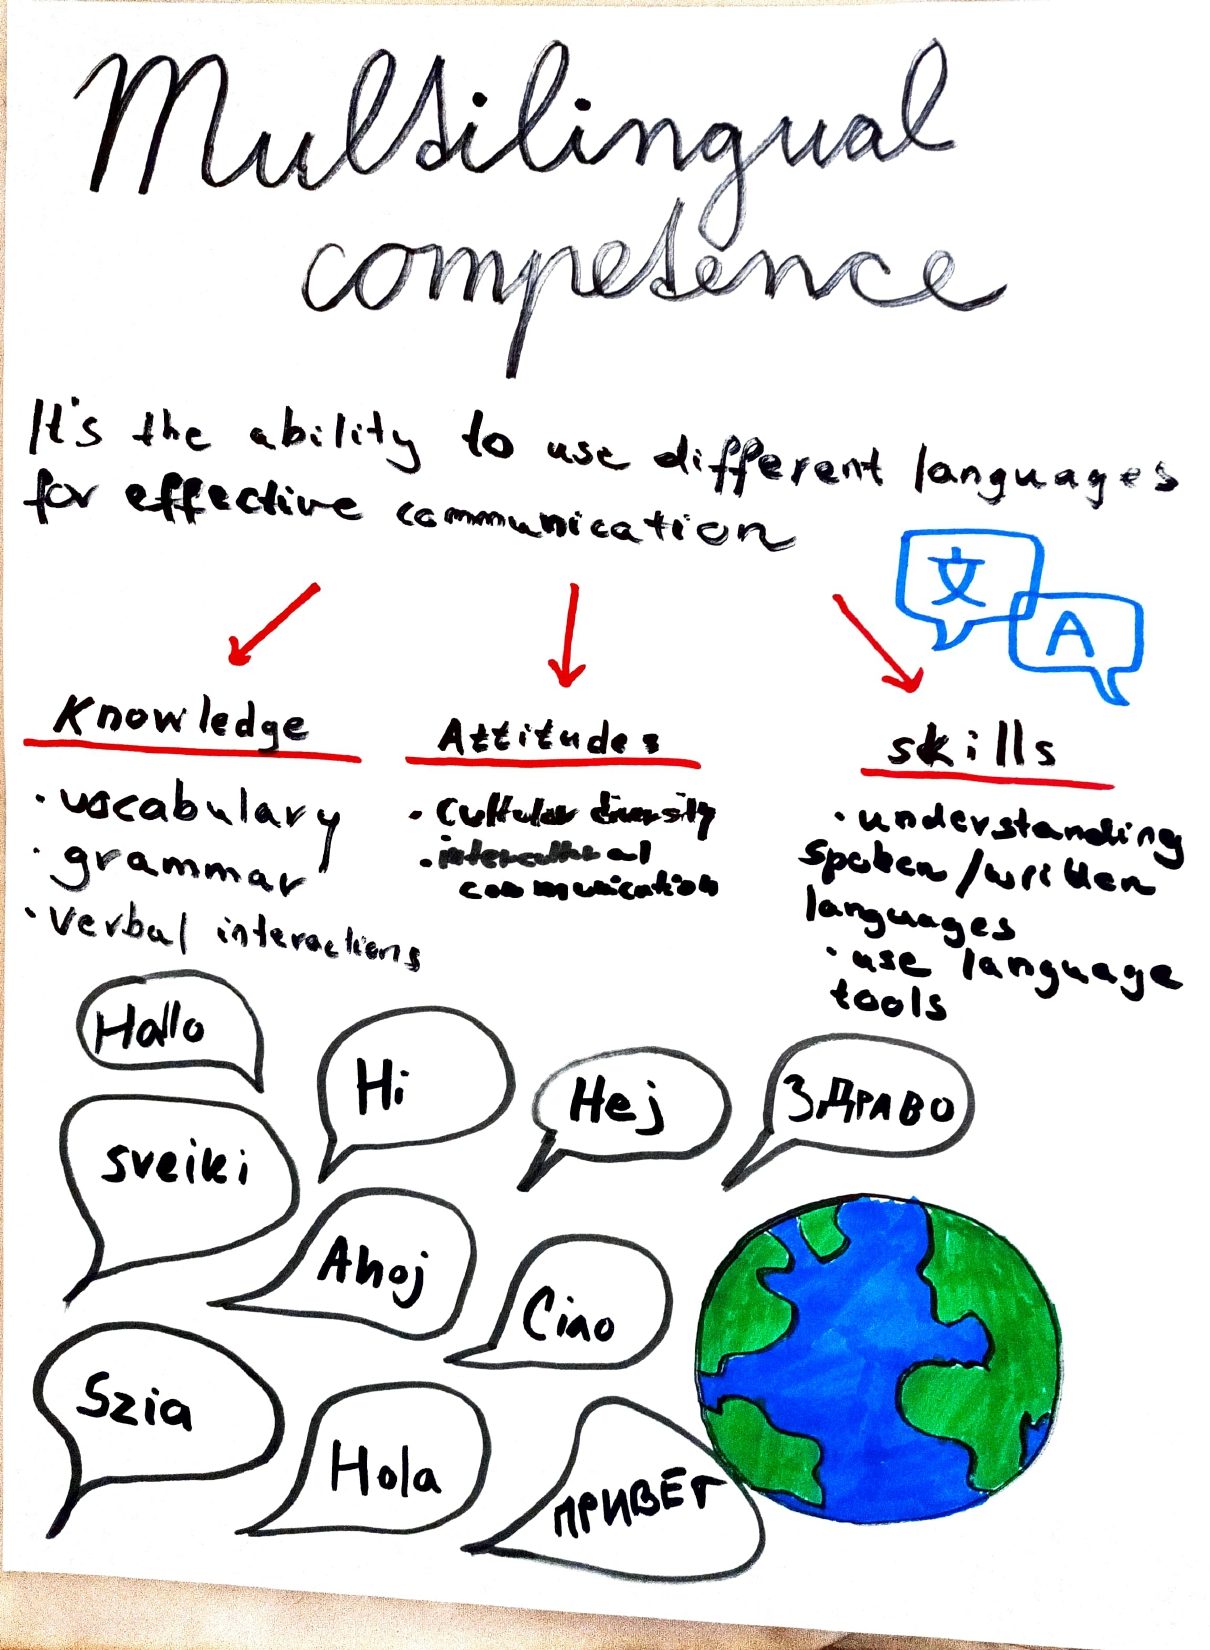 Multilingual
competence
It's the ability to use different languages
for effective communication
文
A
Knowledge
• vocabulary
• grammar
• verbal interactions
Attitudes
• cultular diversity
• intercultural
communication
skills
• understanding
spoken/written
languages
• use language
tools
Hallo
Hi
Hej
ЗДРАВО
sveiki
Ahoj
Ciao
Szia
Hola
ПРИВЕТ